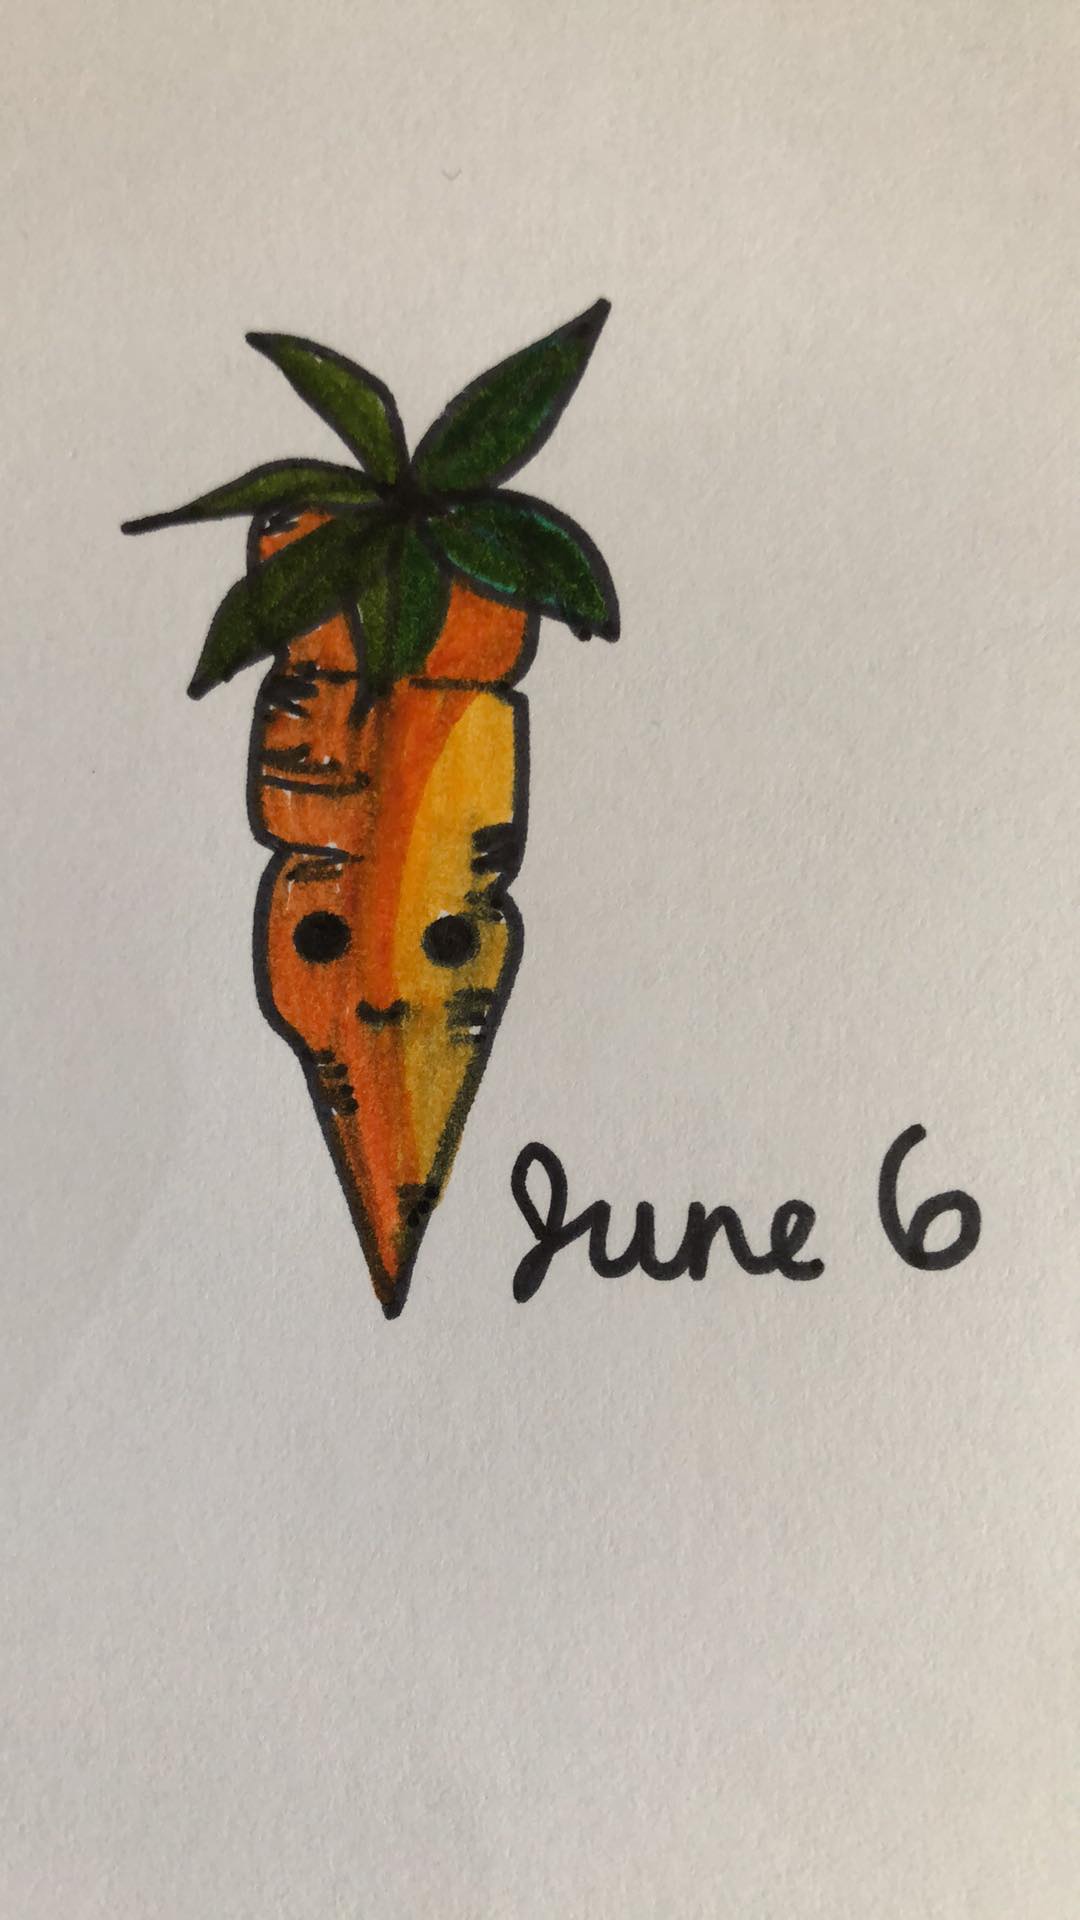 June 6